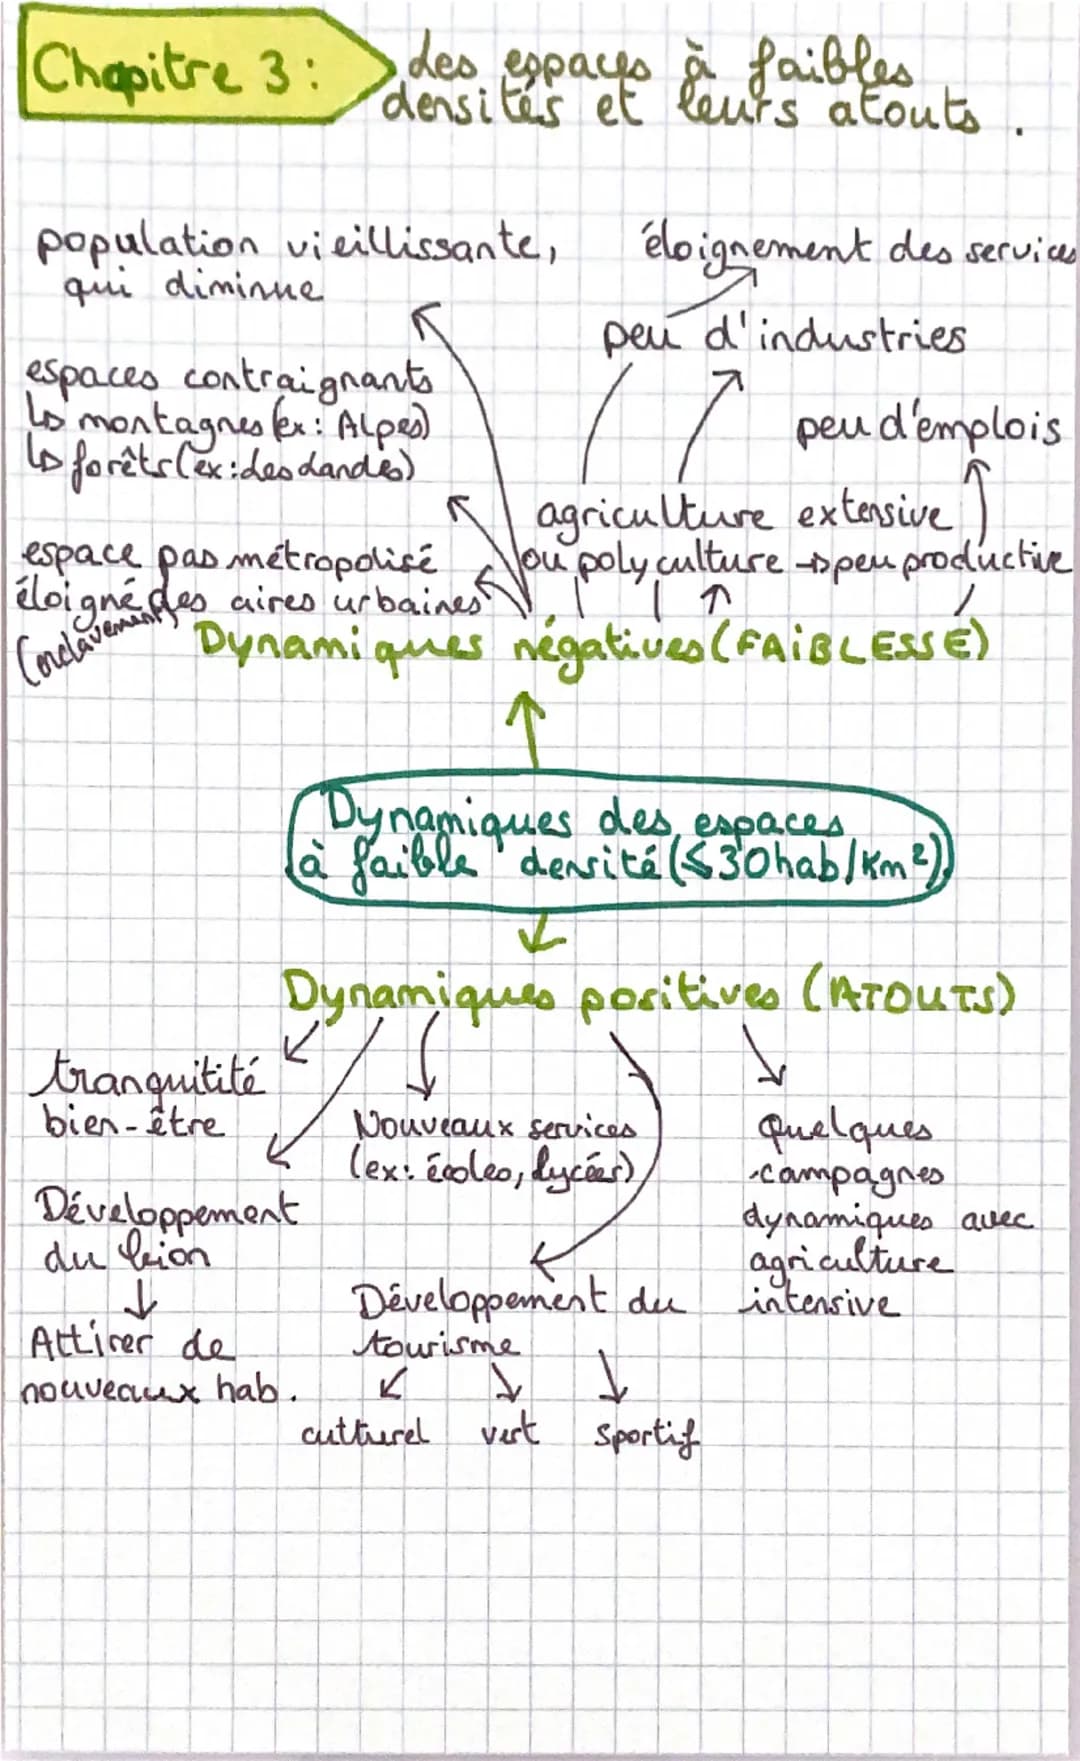 Chapitre 3 :
des espaces à faibles
densités et leurs atouts.
population vieillissante,
qui diminue
éloignement des services
peu d'industries
espaces contraignants
↳ montagnes (ex : Alpes)
↳ forêts (ex : des Landes)
peu d'emplois
agriculture extensive
ou polyculture → peu productive
espace pas métropolisé
éloigné des aires urbaines
(enclavement)
Dynamiques négatives (FAIBLESSE)
Dynamiques des espaces
à faible densité (≤30hab/Km²)
Dynamiques positives (ATOUTS)
tranquitité
bien-être
Nouveaux services
(ex: écoles, lycées)
Quelques
campagnes
dynamiques avec
agriculture
intensive
Développement
du
Attirer de
nouveaux hab.
Développement du
tourisme
culturel vert sportif